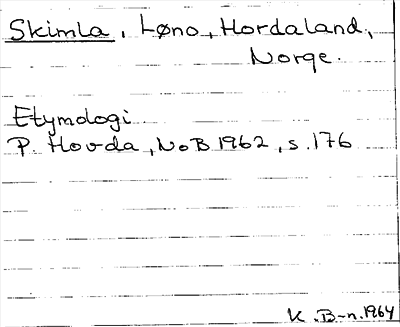 Skimla, Løno, Hordaland,
Norge.
Etymologi
P. Hovda, NoB 1962, s. 176
K. B-n. 1964